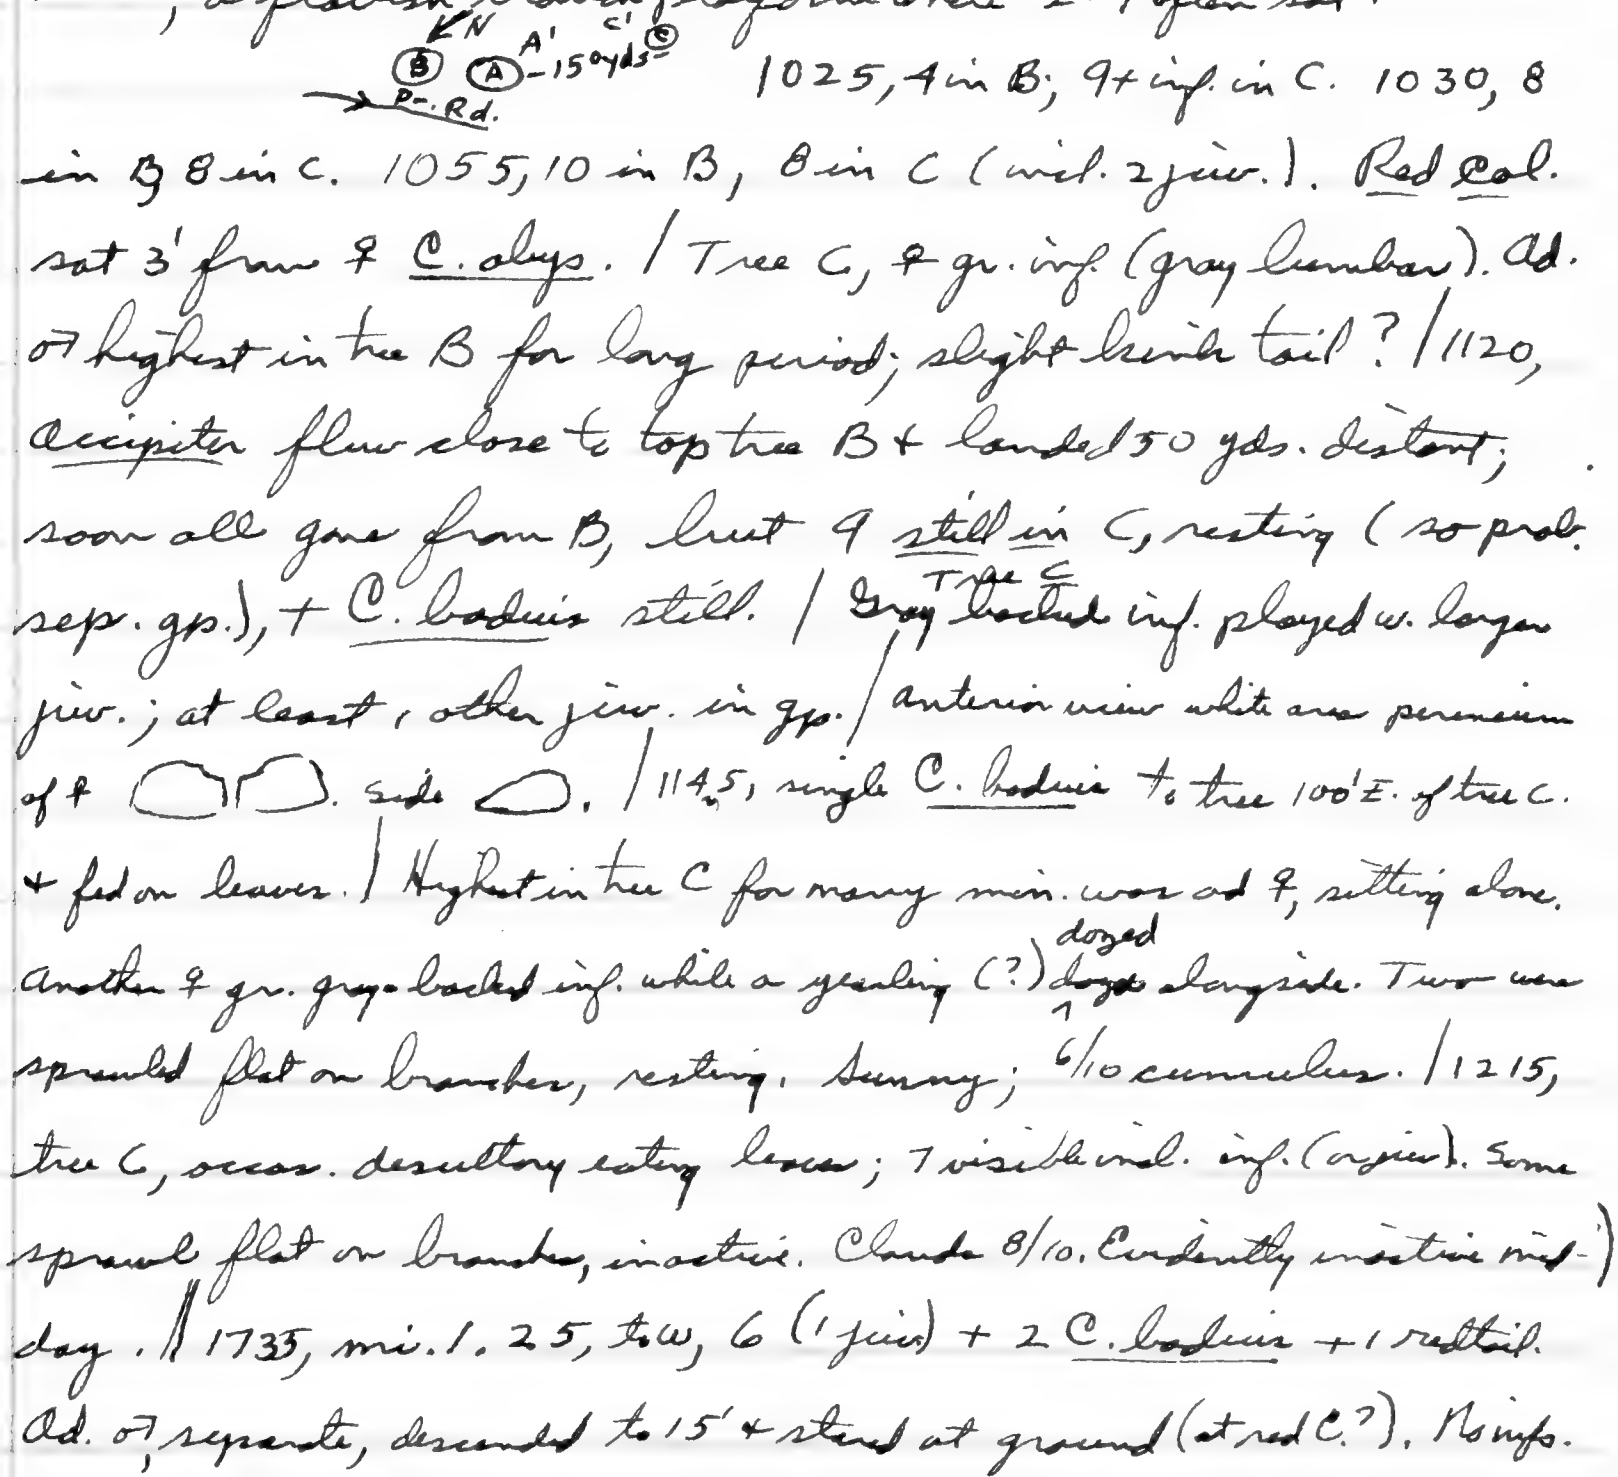 N
B A - 150 yds = C
A' C'
P-. Rd.
1025, 4 in B; 9+ inf. in C. 1030, 8
in B, 8 in C. 1055, 10 in B, 8 in C (incl. 2 juv.). Red Col.
sat 3' from ♀ C. abys. / Tree C, ♀ gr. inf. (gray lumbar). Ad.
♂ highest in tree B for long period; slight kink tail? / 1120,
Accipiter flew close to top tree B + landed 50 yds. distant;
soon all gone from B, but 9 still in C, resting (so prob.
sep. gp.), + C. badius still. / Tree C Gray backed inf. played w. larger
juv.; at least 1 other juv. in gp. / Anterior view white area perineum
of ♀ . Side . / 1145, single C. badius to tree 100' E. of tree C.
+ fed on leaves. / Highest in tree C for many min. was ad ♀, sitting alone.
Another ♀ gr. gray-backed inf. while a yearling (?) dozed alongside. Two were
sprawled flat on branches, resting. Sunny; 6/10 cumulus. / 1215,
tree C, occas. desultory eating leaves; 7 visible incl. inf. (or juv). Some
sprawl flat on branches, inactive. Clouds 8/10. Evidently inactive mid-)
day. // 1735, mi. 1.25, to W, 6 (1 juv) + 2 C. badius + 1 redtail.
Ad. ♂, separate, descended to 15' + stared at ground (at red C.?). No infs.